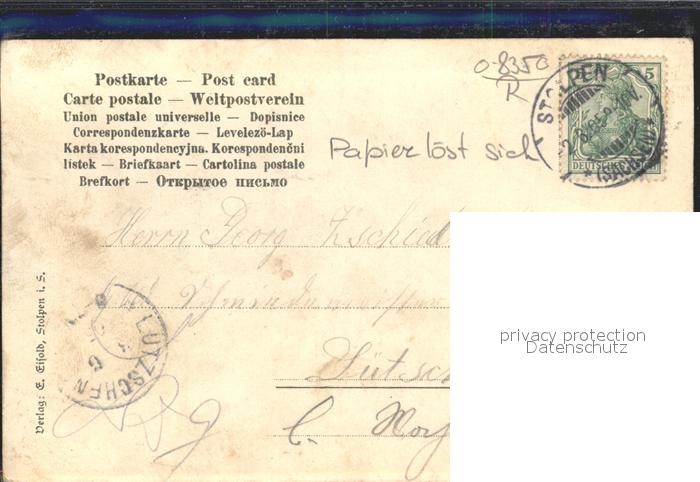 Postkarte — Post card
Carte postale — Weltpostverein
Union postale universelle — Dopisnice
Correspondenzkarte — Levelező-Lap
Karta korespondencyjna. Korespondenční
listek — Briefkaart — Cartolina postale
Brefkort — Открытое письмо
0-8350
R
5
STOLPEN
DEUTSCHES
Papier löst sich
Herrn Georg Zschied
privacy protection
Datenschutz
LÜTZSCHEN
Lütsch
Verlag: E. Eifold, Stolpen i. S.